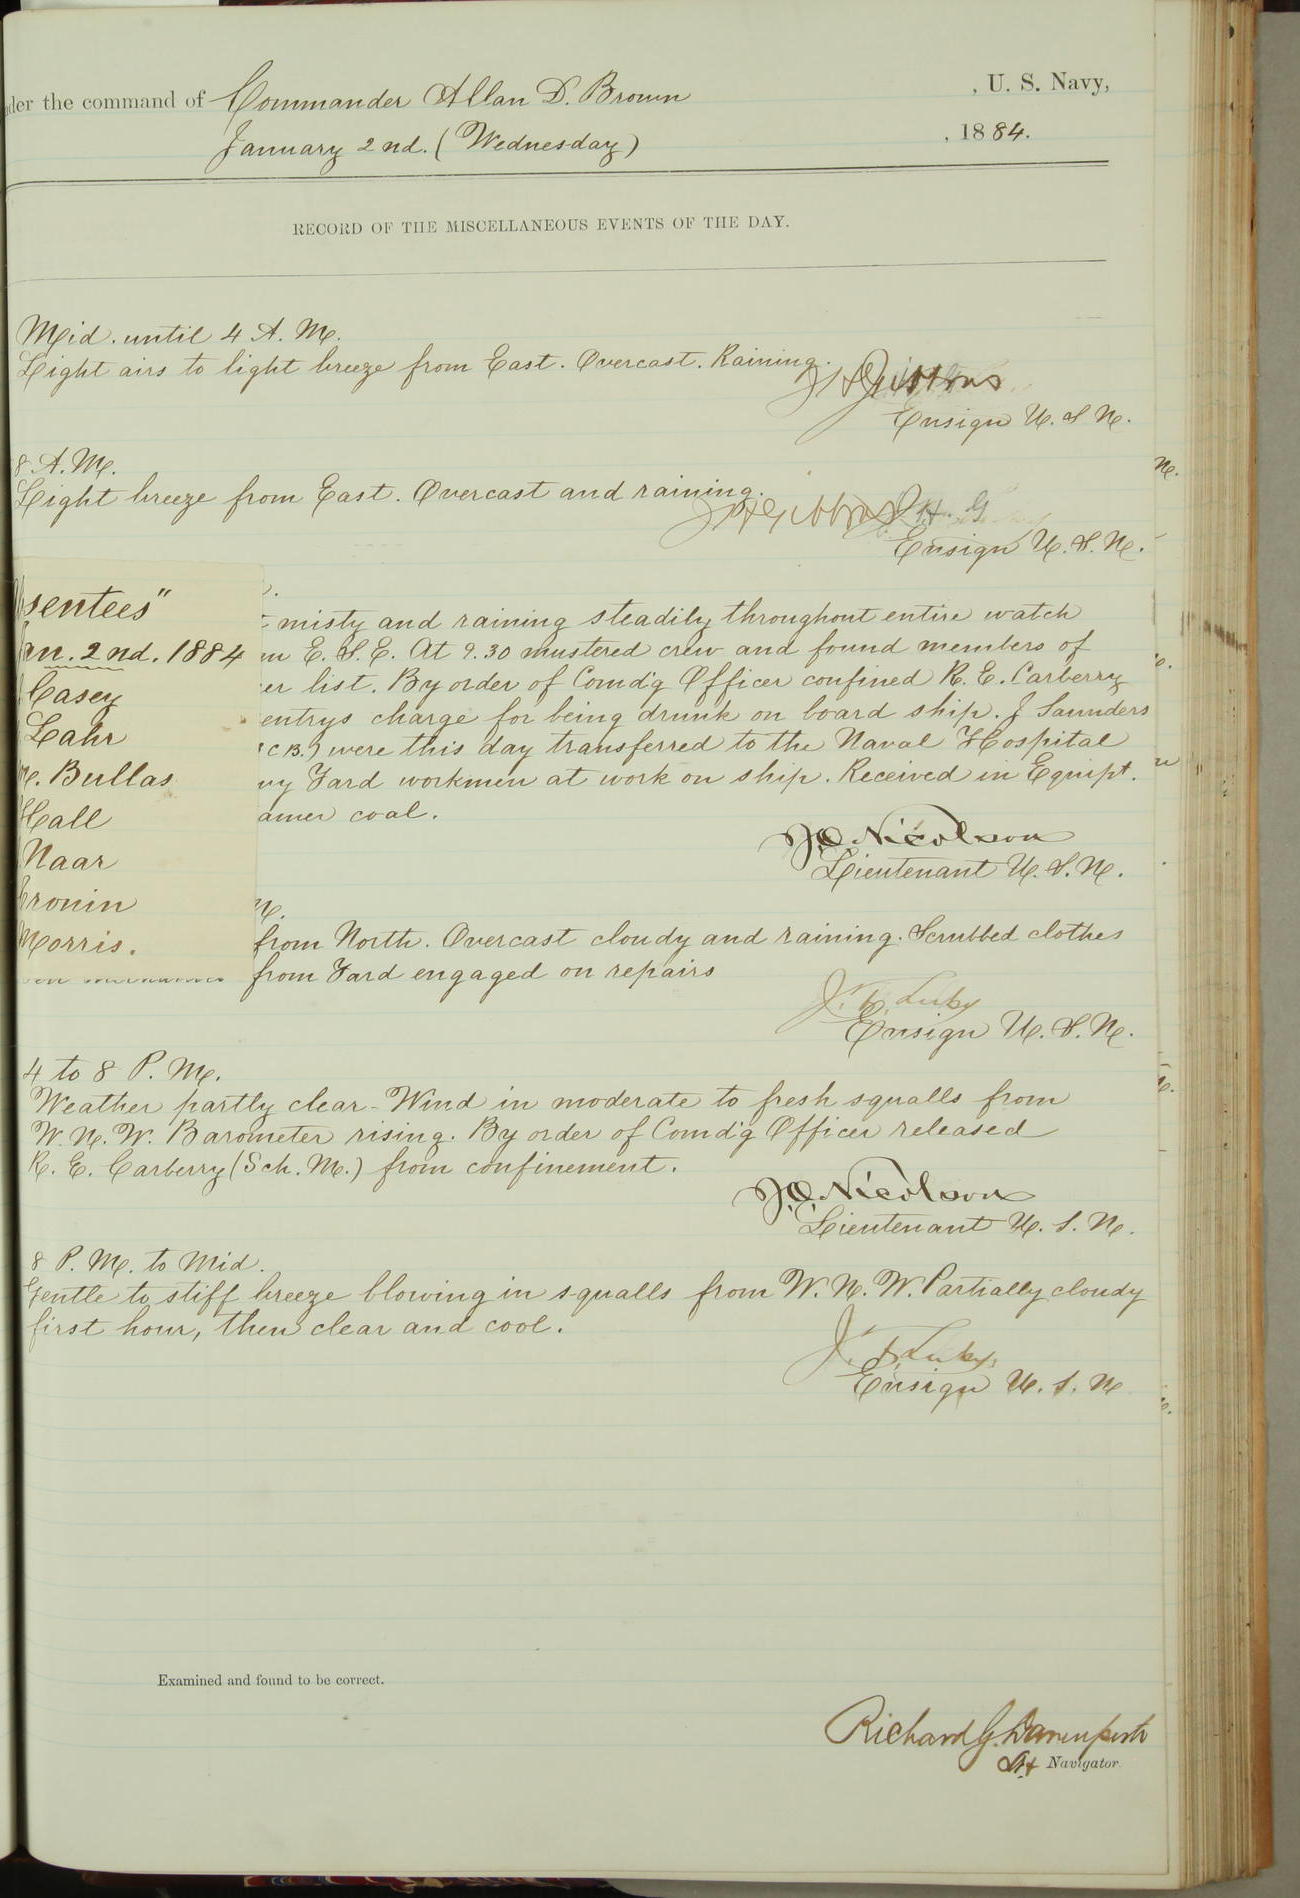 der the command of Commander Allan D. Brown , U. S. Navy,
January 2nd. (Wednesday) , 1884.
RECORD OF THE MISCELLANEOUS EVENTS OF THE DAY.
Mid. until 4 A. M.
Light airs to light breeze from East. Overcast. Raining.
J H Gibbons
Ensign U. S N.
8 A. M.
Light breeze from East. Overcast and raining.
J H Gibbons J. H. G
Ensign U. S. N.
sentees"
an. 2nd. 1884
Casey
Lahr
. Bullas
Hall
Naar
ronin
Morris.
misty and raining steadily throughout entire watch
m E. S. E. At 9.30 mustered crew and found members of
er list. By order of Comd'g Officer confined R. E. Carberry
entrys charge for being drunk on board ship. J Saunders
(C.B.) were this day transferred to the Naval Hospital
vy Yard workmen at work on ship. Received in Equipt.
amer coal.
Nicolson
Lieutenant U. S. N.
M.
from North. Overcast cloudy and raining. Scrubbed clothes
from Yard engaged on repairs
J. F. Luby
Ensign U. S. N.
4 to 8 P. M.
Weather partly clear - Wind in moderate to fresh squalls from
W. N. W. Barometer rising. By order of Comd'g Officer released
R. E. Carberry (Sch. M.) from confinement.
Nicolson
Lieutenant U. S. N.
8 P. M. to Mid.
Gentle to stiff breeze blowing in squalls from W. N. W. Partially cloudy
first hour, then clear and cool.
J. F. Luby,
Ensign U. S. N
Examined and found to be correct.
Richard G. Davenport
Lt Navigator.